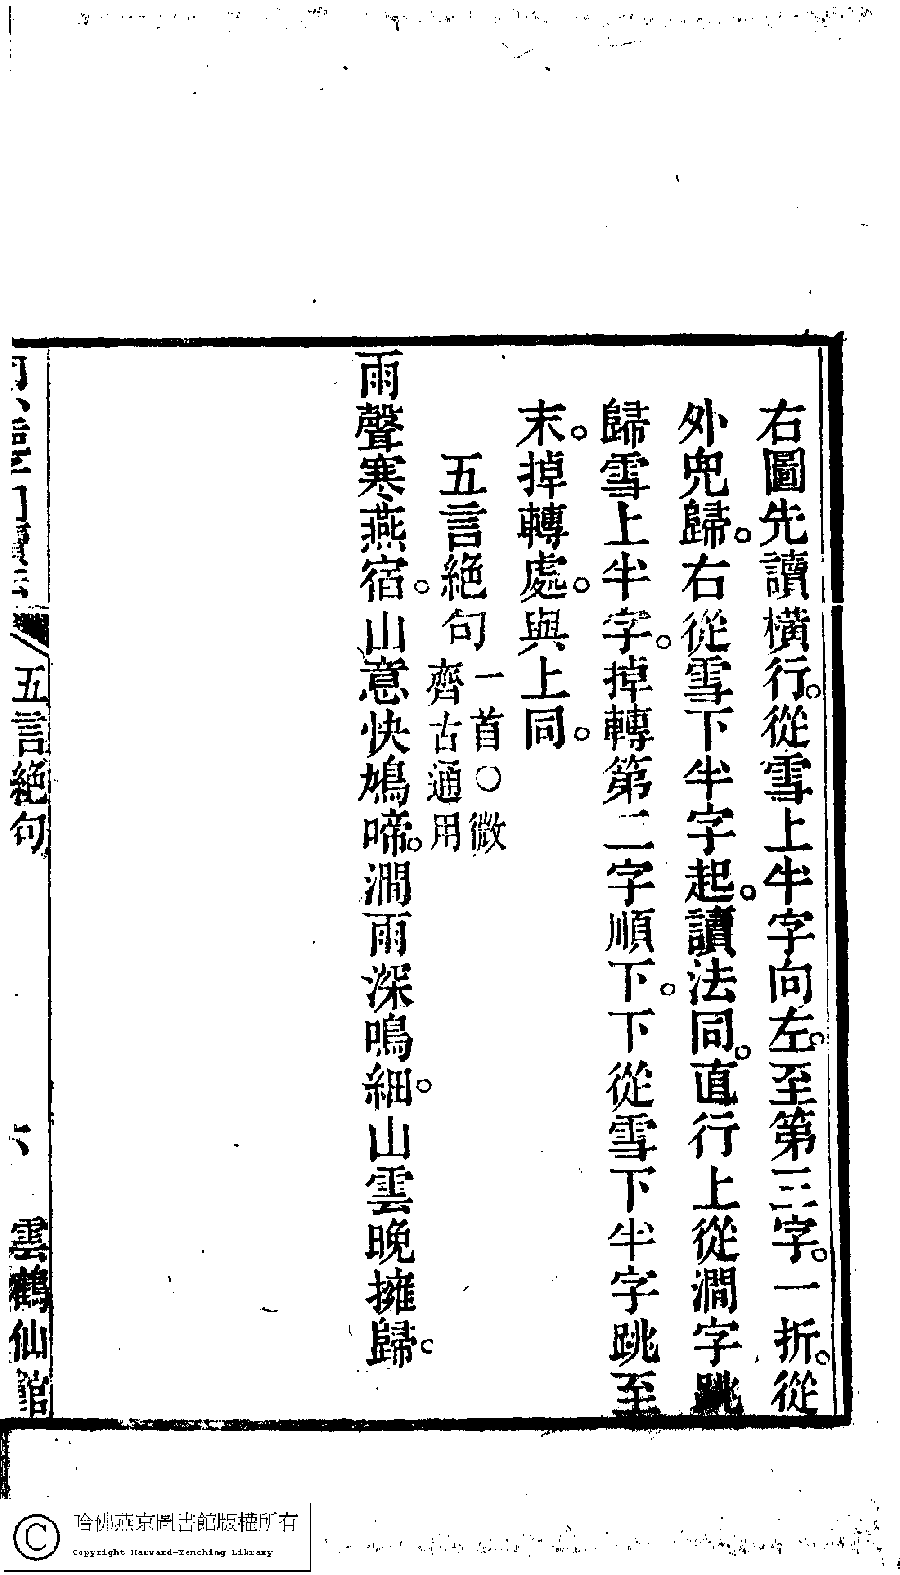 右圖先讀橫行。從雪上半字向左。至第三字。一折。從
外兜歸。右從雪下半字起。讀法同。直行上從澗字跳
歸雪上半字。掉轉第二字順下。下從雪下半字跳至
末。掉轉處。與上同。
五言絕句 一首○微
齊古通用
雨聲寒燕宿。山意快鳩啼。澗雨深鳴細。山雲晚擁歸。
五言絕句
六
雲鶴仙館
哈佛燕京圖書館版權所有
Copyright Harvard-Yenching Library